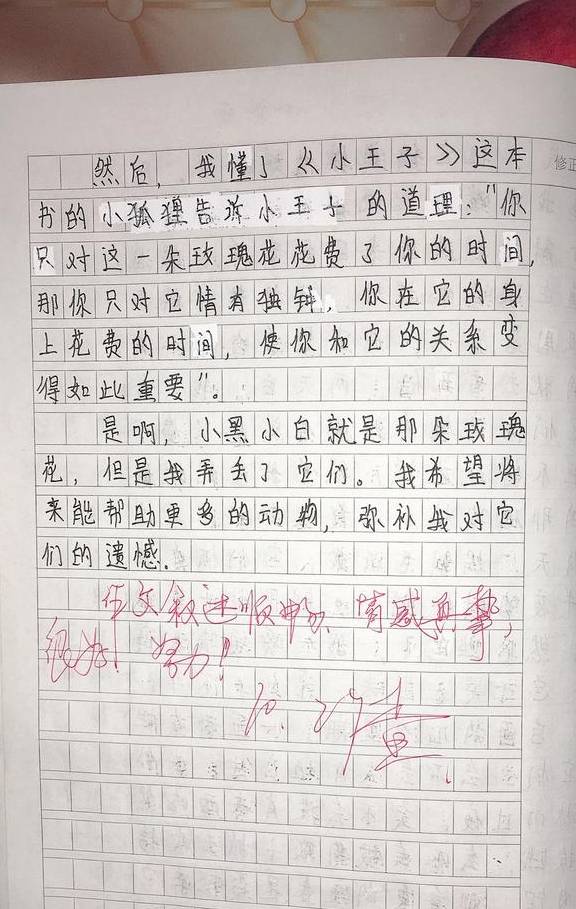 然后，我懂了《小王子》这本
书的小狐狸告诉小王子的道理："你
只对这一朵玫瑰花花费了你的时间，
那你只对它情有独钟，你在它的身
上花费的时间，使你和它的关系变
得如此重要"。
是啊，小黑小白就是那朵玫瑰
花，但是我弄丢了它们。我希望将
来能帮助更多的动物，弥补我对它
们的遗憾。
作文叙述顺畅、情感真挚，
很好！努力！
10.27 查
修正